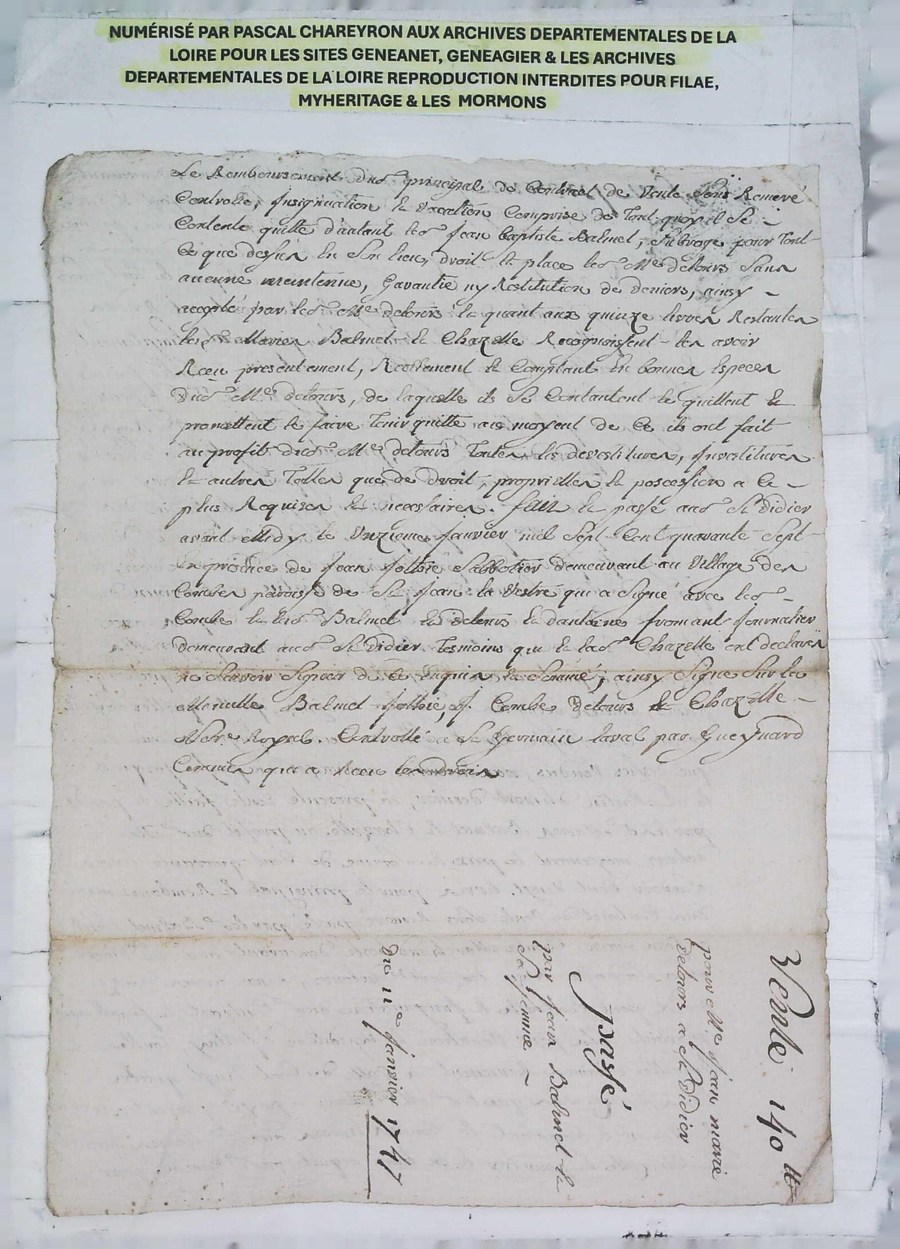 NUMÉRISÉ PAR PASCAL CHAREYRON AUX ARCHIVES DEPARTEMENTALES DE LA
LOIRE POUR LES SITES GENEANET, GENEAGIER & LES ARCHIVES
DEPARTEMENTALES DE LA LOIRE REPRODUCTION INTERDITES POUR FILAE,
MYHERITAGE & LES MORMONS
Le Remboursement dud principal de Contract de Vente sous Remeré
Controlle, Insignuation et Vacation Comprise de Tout quoy il se
Contente quitte d'autant led Jean Baptiste Balmet, subroge pour Tout
Ce que dessus En son lieu, droit et place led Me delours sans
aucune meintenue, Garantie ny Restitution de deniers, ainsy
accepté par led Me delours Et quant aux quinze livres Restantes
lesd Mariés Balmet et Chazelle Recognoissent les avoir
Receu presentement, Reellement et Comptant En bonnes Especes
dud Me delours, de laquelle ils se Contantent le quittent et
promettent le faire Tenir quitte au moyent de Ce ils ont fait
au profit dud Me delours Toutes les devestitures, Investitures
et autres Telles que de droit, proprieté et pocession a Ce
plus Requises et necessaires. fait et passé aud St Didier
avant Midy le Unzieme Janvier mil Sept Cent quarante Sept
En presence de Jean Jothie Sabbotier demeurant au Village des
Combes paroisse de St Jean la Vestré qui a signé avec led
Combe et led Balmet et delours et d'antoine fromant Journalier
demeurant aud St Didier Tesmoins qui et lad Chazelle ont declarés
ne Scavoir Signer de Ce Enquis et Sommé, ainsy Signé sur la
Menutte Balmet Jothie, J. Combe delours et Chazelle
Nore Royal. Controllé a St Germain laval par Gueynard
Commis qui a Receu les droits
Vente 140 tt
pour Me Jean marie
delours a St Didier
passé
par Jean Balmet et
sa femme
du 11e Janvier 1747